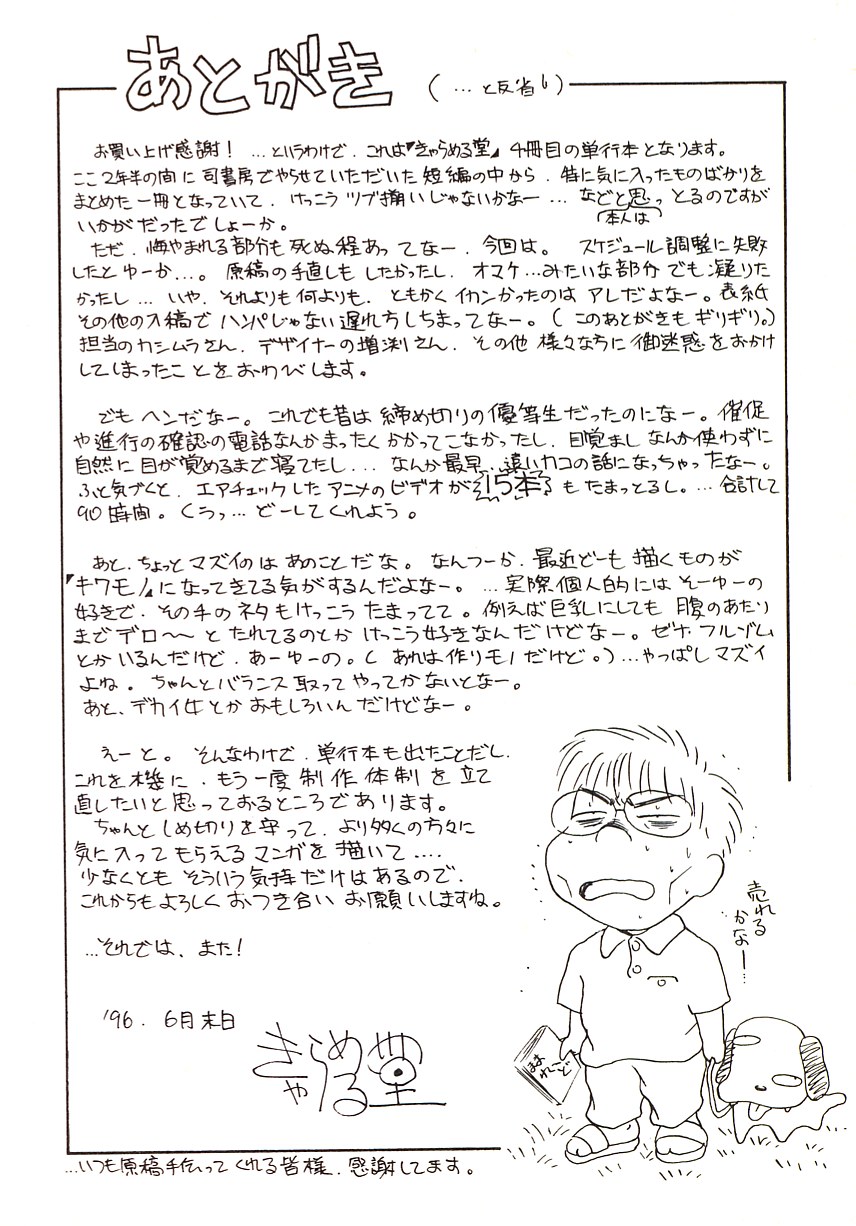 あとがき (…と反省！)
お買い上げ感謝！…というわけで、これは『きゃらめる堂』4冊目の単行本となります。
ここ2年半の間に司書房でやらせていただいた短編の中から、特に気に入ったものばかりを
まとめた一冊となっていて、けっこうツブ揃いじゃないかなー…などと思っとるのですが
(本人は)
いかがだったでしょーか。
ただ、悔やまれる部分も死ぬ程あってなー、今回は。スケジュール調整に失敗
したとゆーか…。原稿の手直しもしたかったし、オマケ…みたいな部分でも凝りた
かったし…いや、それよりも何よりも、ともかくイカンかったのはアレだよなー。表紙
その他の入稿でハンパじゃない遅れ方しちまってなー。(このあとがきもギリギリ。)
担当のカシムラさん、デザイナーの増渕さん、その他様々な方に御迷惑をおかけ
してしまったことをおわびします。
でもヘンだなー。これでも昔は締め切りの優等生だったのになー。催促
や進行の確認の電話なんかまったくかかってこなかったし、目覚ましなんか使わずに
自然に目が覚めるまで寝てたし…なんか最早、遠いカコの話になっちゃったなー。
ふと気づくと、エアチェックしたアニメのビデオが15本もたまっとるし。…合計して
90時間。くうっ…どーしてくれよう。
あと、ちょっとマズイのはあのことだな。なんつーか、最近どーも描くものが
『キワモノ』になってきてる気がするんだよなー。…実際個人的にはそーゆーの
好きで、その手のネタもけっこうたまってて。例えば巨乳にしても腹のあたり
までデロ〜〜とたれてるのとかけっこう好きなんだけどなー。ゼナ・フルゾム
とかいるんだけど、あーゆーの。(あれは作りモノだけど。)…やっぱしマズイ
よね。ちゃんとバランス取ってやってかないとなー。
あと、デカイ女とかおもしろいんだけどなー。
えーと。そんなわけで、単行本も出たことだし、
これを機に、もう一度制作体制を立て
直したいと思っておるところであります。
ちゃんとしめ切りを守って、より多くの方々に
気に入ってもらえるマンガを描いて….
少なくともそういう気持だけはあるので、
これからもよろしくおつき合いお願いしますね。
…それでは、また！
'96. 6月末日
きゃらめる堂
売れる
かなー…
…いつも原稿手伝ってくれる皆様、感謝してます。